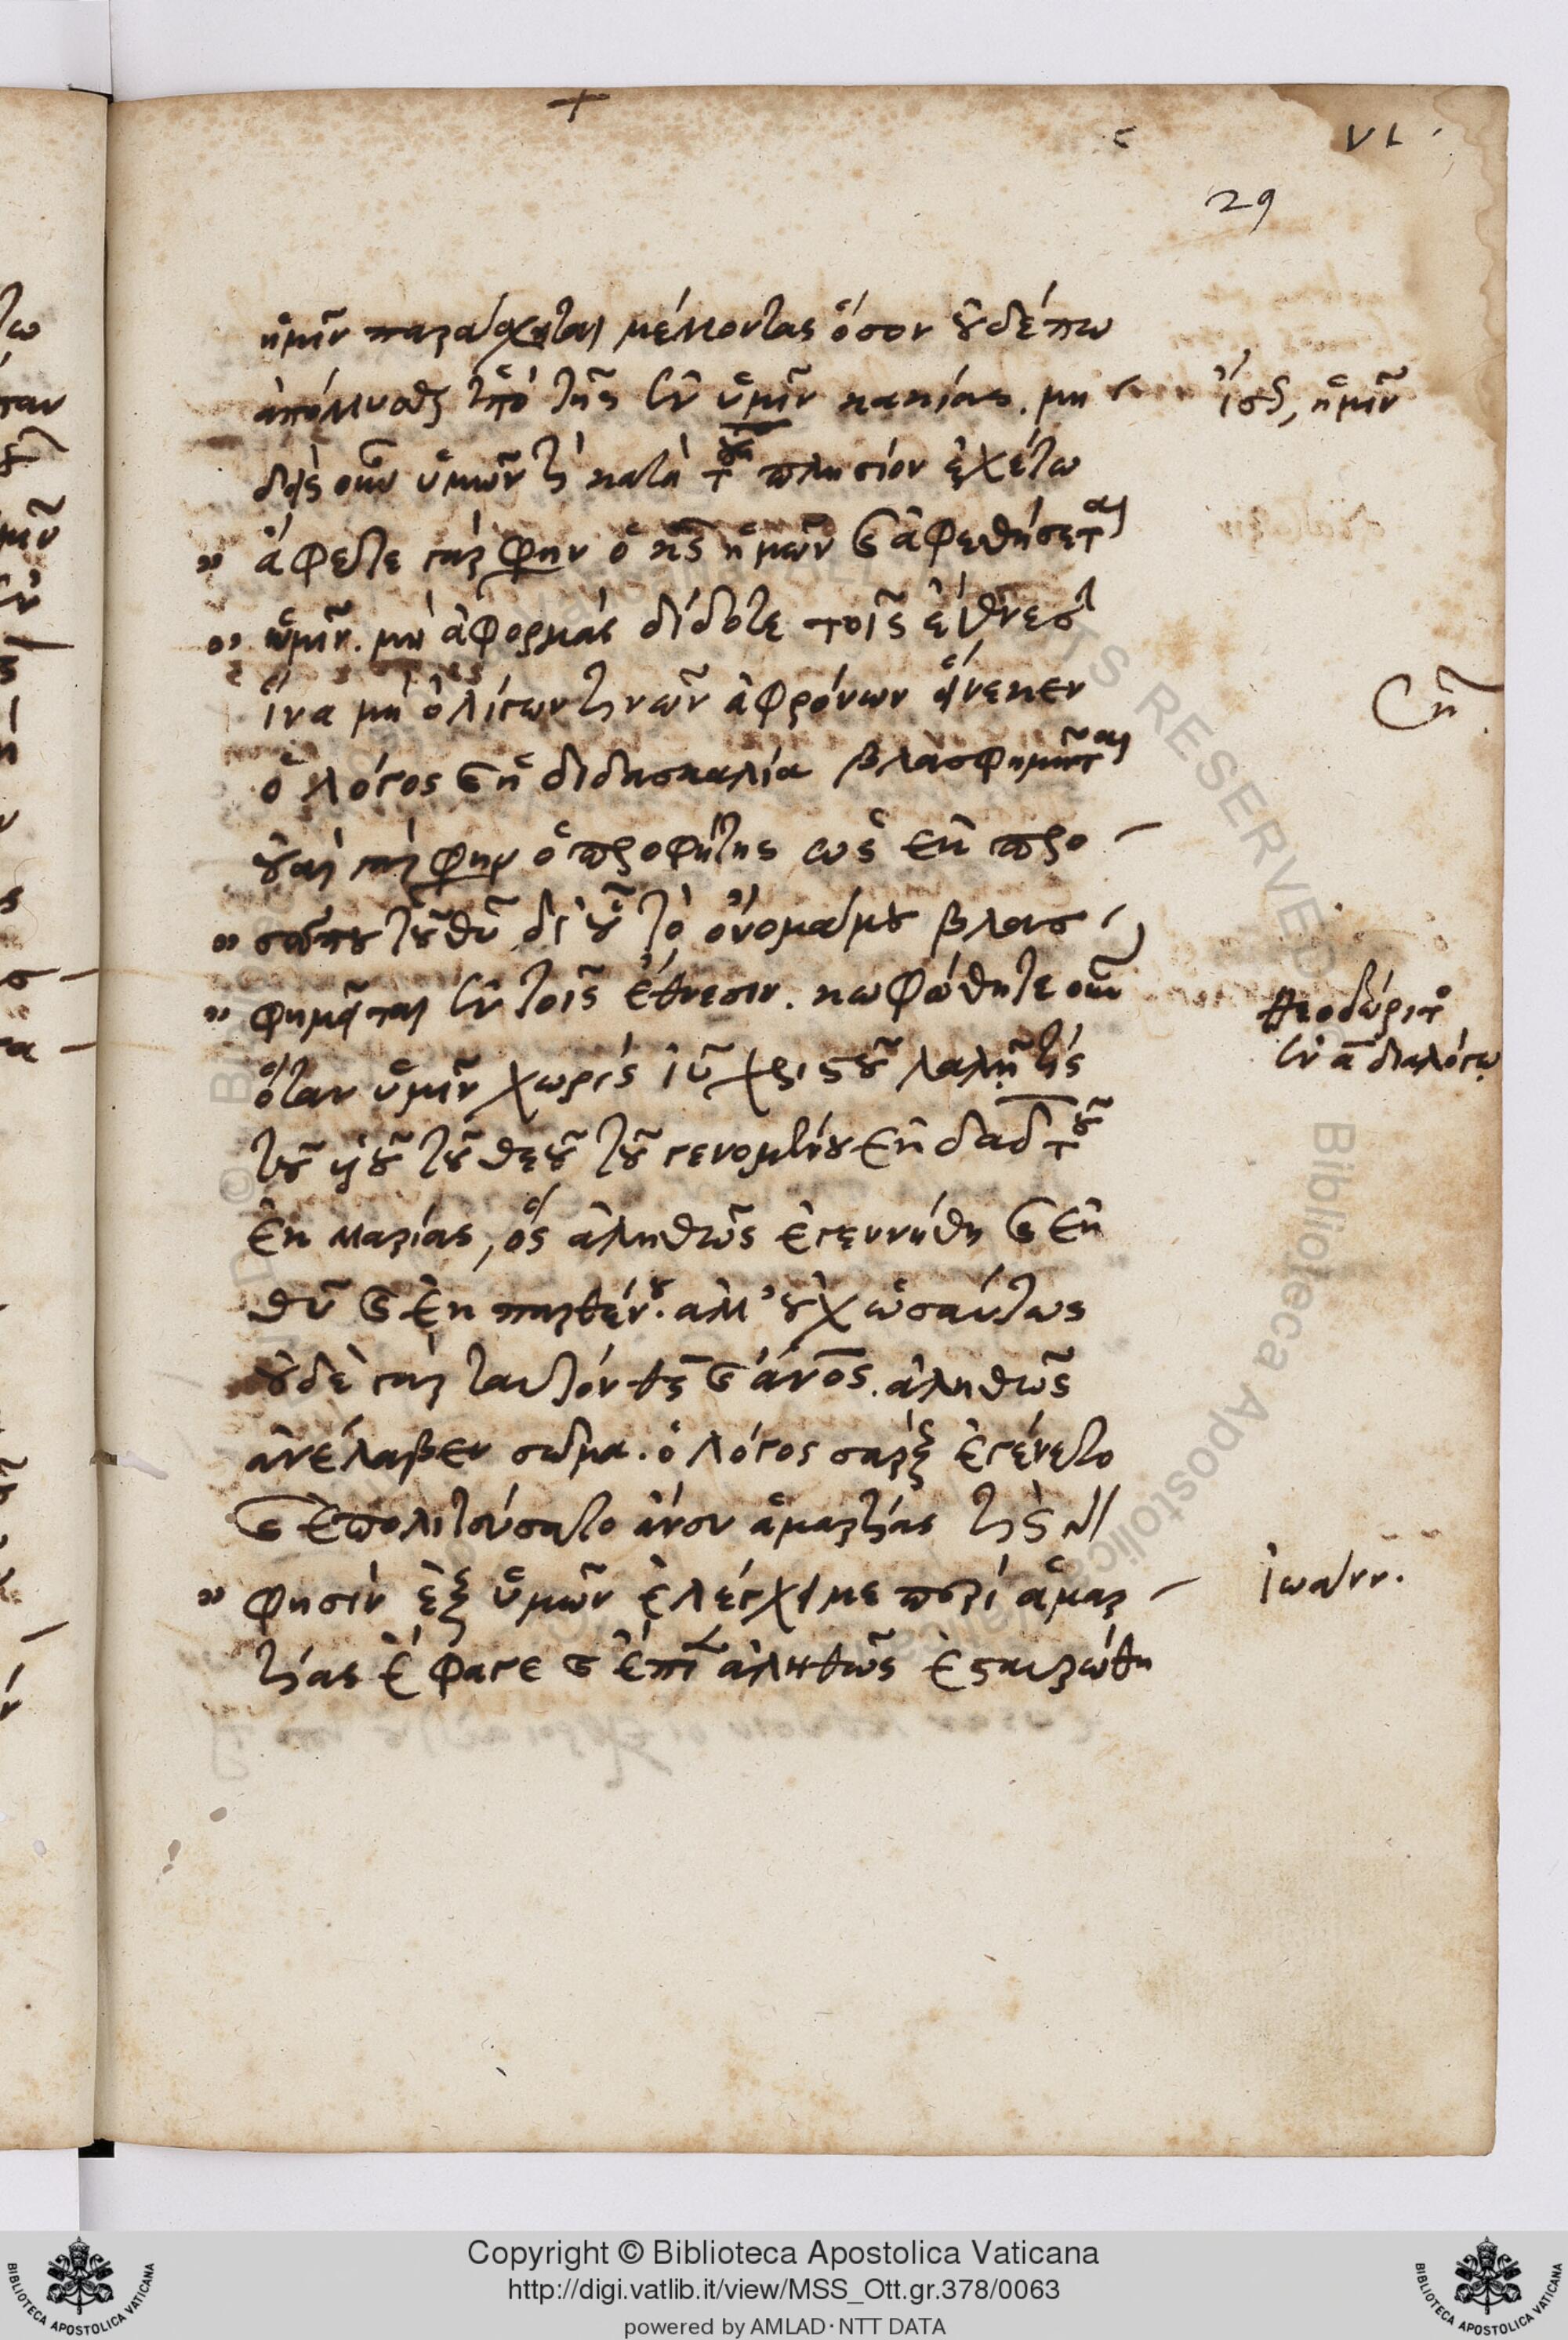 VI
29
ἡμῖν παράσχηται μέλλοντας ὅσον οὐδέπω
ἀπόλλυσθαι ὑπὸ τῆς ἐν ὑμῖν κακίας. μη
δεὶς οὖν ὑμῶν τὶ κατὰ τοῦ πλησίον ἐχέτω
ἄφετε γάρ φησιν ὁ κς ἡμῶν καὶ ἀφεθήσεται
ὑμῖν. μὴ ἀφορμὰς δίδοτε τοῖς ἔθνεσι
ἵνα μὴ ὀλίγων τινῶν ἀφρόνων ἕνεκεν
ὁ λόγος καὶ ἡ διδασκαλία βλασφημῆται
οὐαὶ γάρ φησιν ὁ προφήτης ὡς ἐκ προ
σώπου τοῦ θυ δι' οὗ τὸ ὄνομά μου βλασ
φημῆται ἐν τοῖς ἔθνεσιν. κωφώθητε οὖν
ὅταν ὑμῖν χωρὶς ιυ χριστοῦ λαλῇ τίς
τοῦ υἱοῦ τοῦ θεοῦ τοῦ γενομένου ἐκ δαδ τοῦ
ἐκ μαρίας, ὃς ἀληθῶς ἐγεννήθη καὶ ἐκ
θυ καὶ ἐκ παρθένου. ἀλλ' οὐχ ὡσαύτως
οὐδὲ γὰρ ταυτὸν θς καὶ ἄνος. ἀληθῶς
ἀνέλαβεν σῶμα. ὁ λόγος σὰρξ ἐγένετο
καὶ ἐπολιτεύσατο ἄνευ ἁμαρτίας τίς γὰρ
φησὶν ἐξ ὑμῶν ἐλέγχει με περὶ ἁμαρ
τίας ἔφαγε καὶ ἔπιεν ἀληθῶς ἐσταυρώθη
ἴσως, ἡμῖν
ση
θεοδώριτος
ἐν α διαλόγῳ
ἰωάνν.
Copyright © Biblioteca Apostolica Vaticana
http://digi.vatlib.it/view/MSS_Ott.gr.378/0063
powered by AMLAD·NTT DATA
BIBLIOTECA APOSTOLICA VATICANA
BIBLIOTECA APOSTOLICA VATICANA